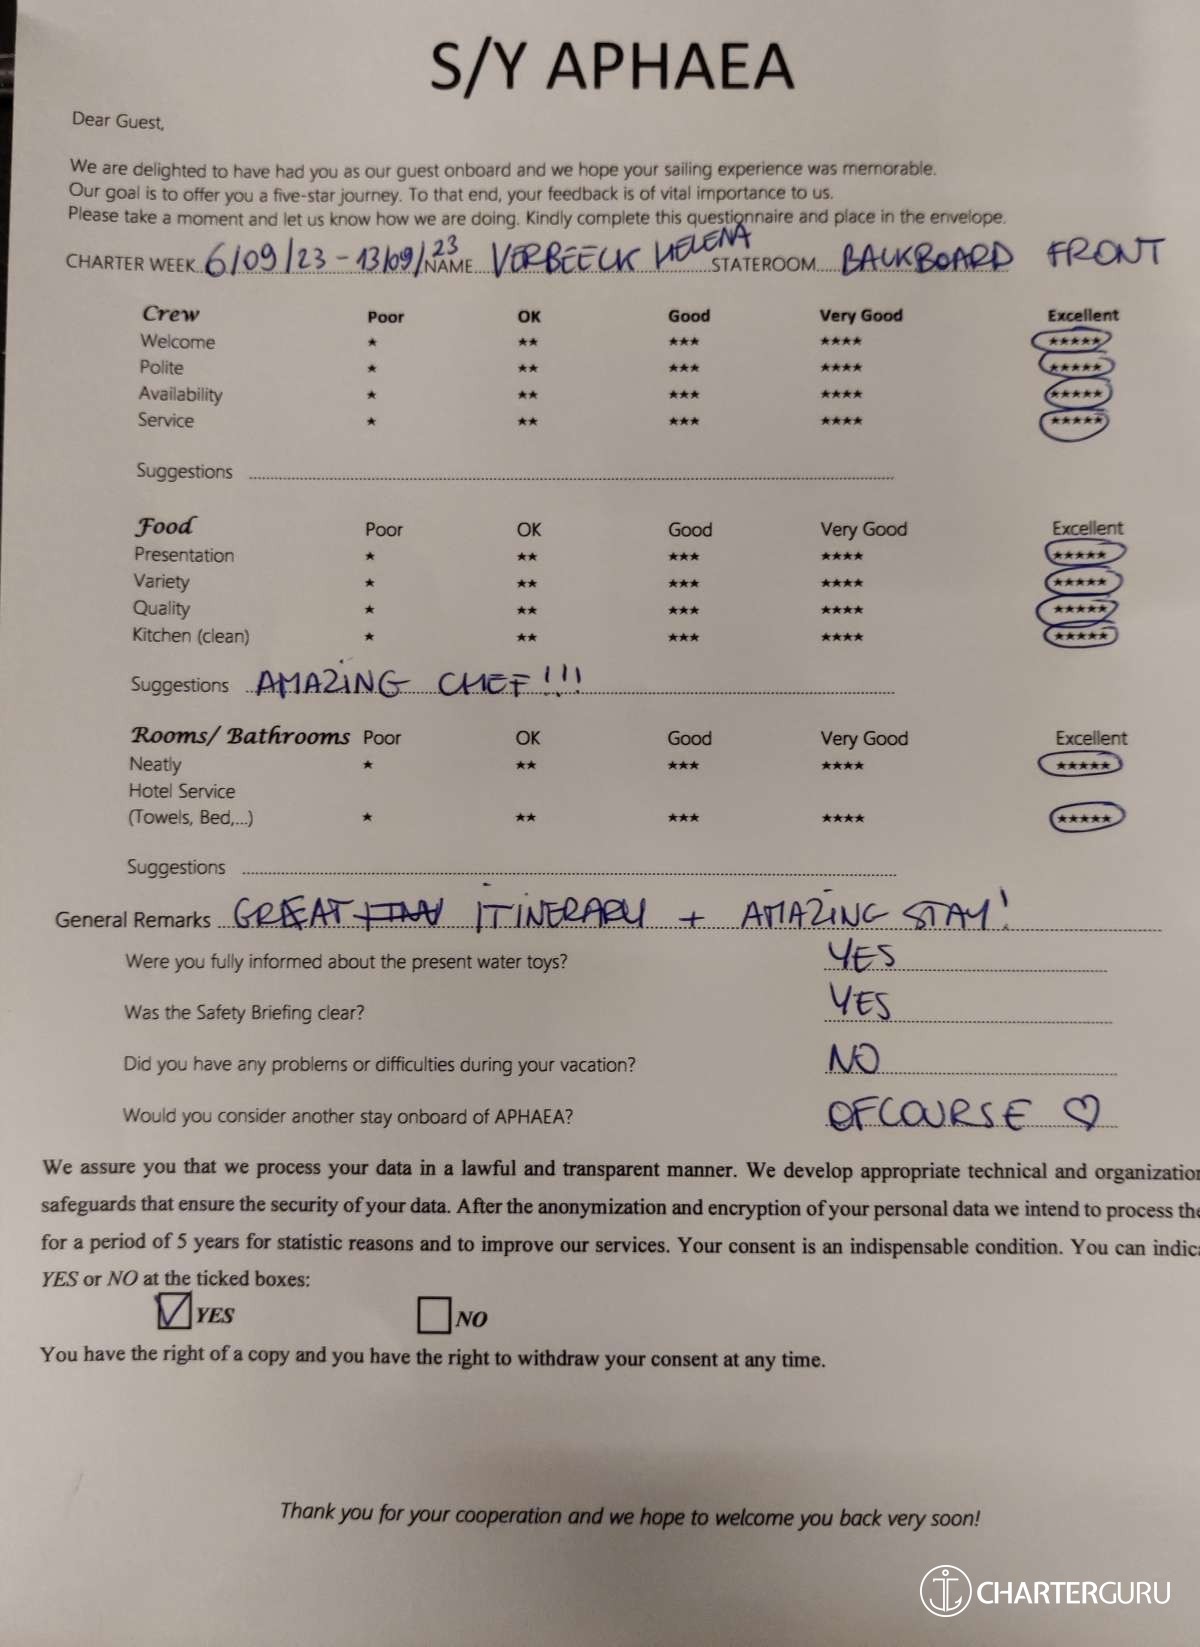 S/Y APHAEA
Dear Guest,
We are delighted to have had you as our guest onboard and we hope your sailing experience was memorable.
Our goal is to offer you a five-star journey. To that end, your feedback is of vital importance to us.
Please take a moment and let us know how we are doing. Kindly complete this questionnaire and place in the envelope.
CHARTER WEEK 6/09/23 - 13/09/23 NAME VERBEECK HELENA STATEROOM BACKBOARD FRONT
Crew Poor OK Good Very Good Excellent
Welcome ★ ★★ ★★★ ★★★★ ★★★★★
Polite ★ ★★ ★★★ ★★★★ ★★★★★
Availability ★ ★★ ★★★ ★★★★ ★★★★★
Service ★ ★★ ★★★ ★★★★ ★★★★★
Suggestions
Food Poor OK Good Very Good Excellent
Presentation ★ ★★ ★★★ ★★★★ ★★★★★
Variety ★ ★★ ★★★ ★★★★ ★★★★★
Quality ★ ★★ ★★★ ★★★★ ★★★★★
Kitchen (clean) ★ ★★ ★★★ ★★★★ ★★★★★
Suggestions AMAZING CHEF!!!
Rooms/ Bathrooms Poor OK Good Very Good Excellent
Neatly ★ ★★ ★★★ ★★★★ ★★★★★
Hotel Service
(Towels, Bed,...) ★ ★★ ★★★ ★★★★ ★★★★★
Suggestions
General Remarks GREAT ITINERARY + AMAZING STAY!
Were you fully informed about the present water toys? YES
Was the Safety Briefing clear? YES
Did you have any problems or difficulties during your vacation? NO
Would you consider another stay onboard of APHAEA? OFCOURSE ♡
We assure you that we process your data in a lawful and transparent manner. We develop appropriate technical and organization
safeguards that ensure the security of your data. After the anonymization and encryption of your personal data we intend to process the
for a period of 5 years for statistic reasons and to improve our services. Your consent is an indispensable condition. You can indica
YES or NO at the ticked boxes:
☑ YES ☐ NO
You have the right of a copy and you have the right to withdraw your consent at any time.
Thank you for your cooperation and we hope to welcome you back very soon!
CHARTERGURU